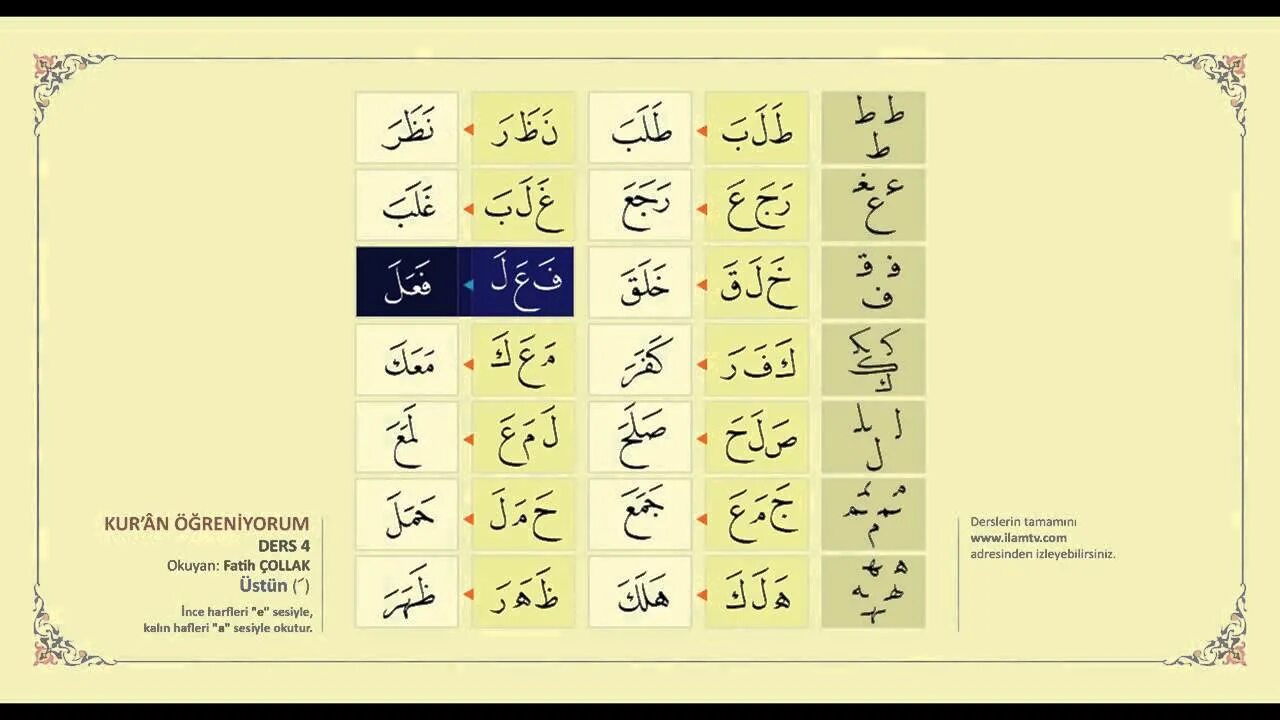 ط ط طَ لَ بَ طَلَبَ نَ ظَ رَ نَظَرَ
ط
ع غ رَ جَ عَ رَجَعَ غَ لَ بَ غَلَبَ
ع
ف ق خَ لَ قَ خَلَقَ فَ عَ لَ فَعَلَ
ف
كَ فَ رَ كَفَرَ مَ عَ كَ مَعَكَ
ك
صَ لَ حَ صَلَحَ لَ مَ عَ لَمَعَ
ل
جَ مَ عَ جَمَعَ حَ مَ لَ حَمَلَ
م
هَ لَ كَ هَلَكَ ظَ هَ رَ ظَهَرَ
KUR'ÂN ÖĞRENİYORUM
DERS 4
Okuyan: Fatih ÇOLLAK
Üstün (َ)
İnce harfleri "e" sesiyle,
kalın hafleri "a" sesiyle okutur.
Derslerin tamamını
www.ilamtv.com
adresinden izleyebilirsiniz.